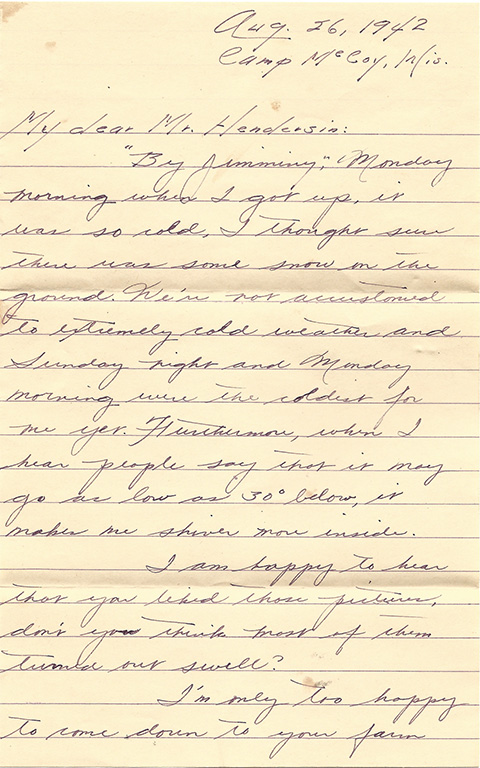 Aug. 26, 1942
Camp McCoy, Wis.
My dear Mr. Hendersin:
"By Jimminy", Monday
morning when I got up, it
was so cold, I thought sure
there was some snow on the
ground. We're not accustomed
to extremely cold weather and
Sunday night and Monday
morning were the coldest for
me yet. Furthermore, when I
hear people say that it may
go as low as 30° below, it
makes me shiver more inside.
I am happy to hear
that you liked those pictures,
don't you think most of them
turned out swell?
I'm only too happy
to come down to your farm